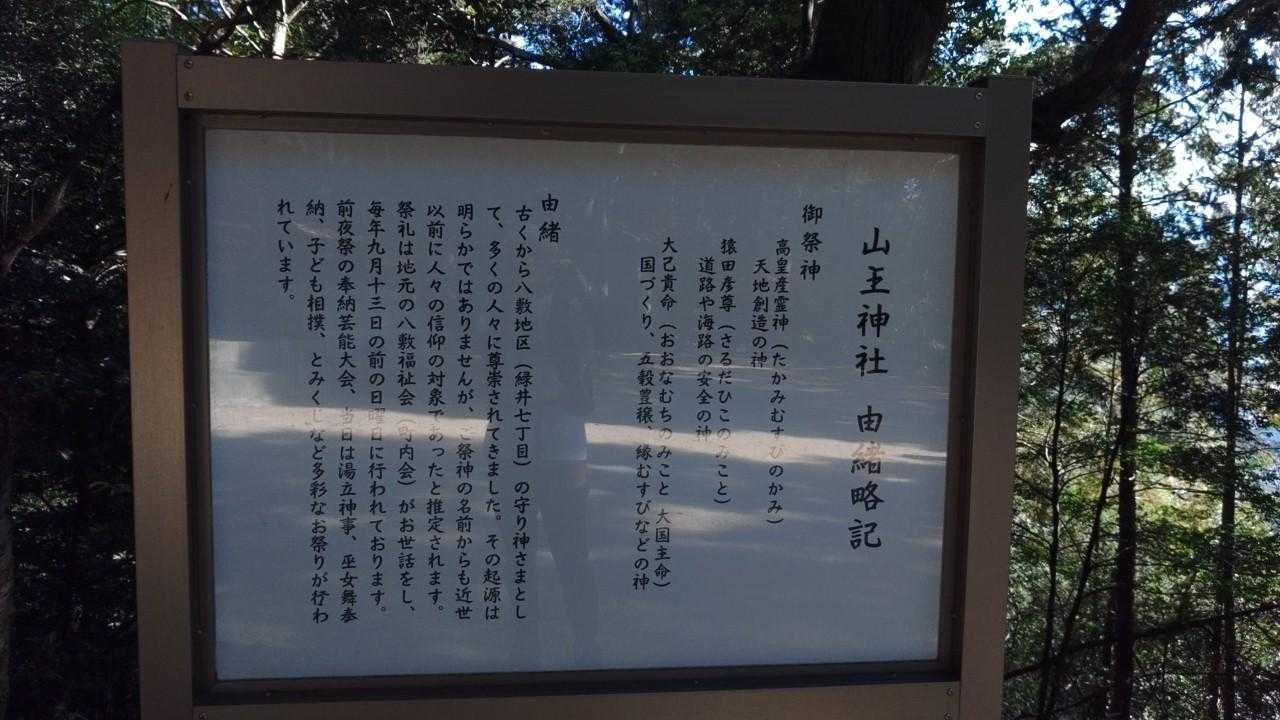 山王神社　由緒略記
御祭神
高皇産霊神（たかみむすびのかみ）
天地創造の神
猿田彦尊（さるだひこのみこと）
道路や海路の安全の神
大己貴命（おおなむちのみこと　大国主命）
国づくり、五穀豊穣、縁むすびなどの神
由緒
古くから八敷地区（緑井七丁目）の守り神さまとし
て、多くの人々に尊崇されてきました。その起源は
明らかではありませんが、ご祭神の名前からも近世
以前に人々の信仰の対象であったと推定されます。
祭礼は地元の八敷福祉会（町内会）がお世話をし、
毎年九月十三日の前の日曜日に行われております。
前夜祭の奉納芸能大会、当日は湯立神事、巫女舞奉
納、子ども相撲、とみくじなど多彩なお祭りが行わ
れています。